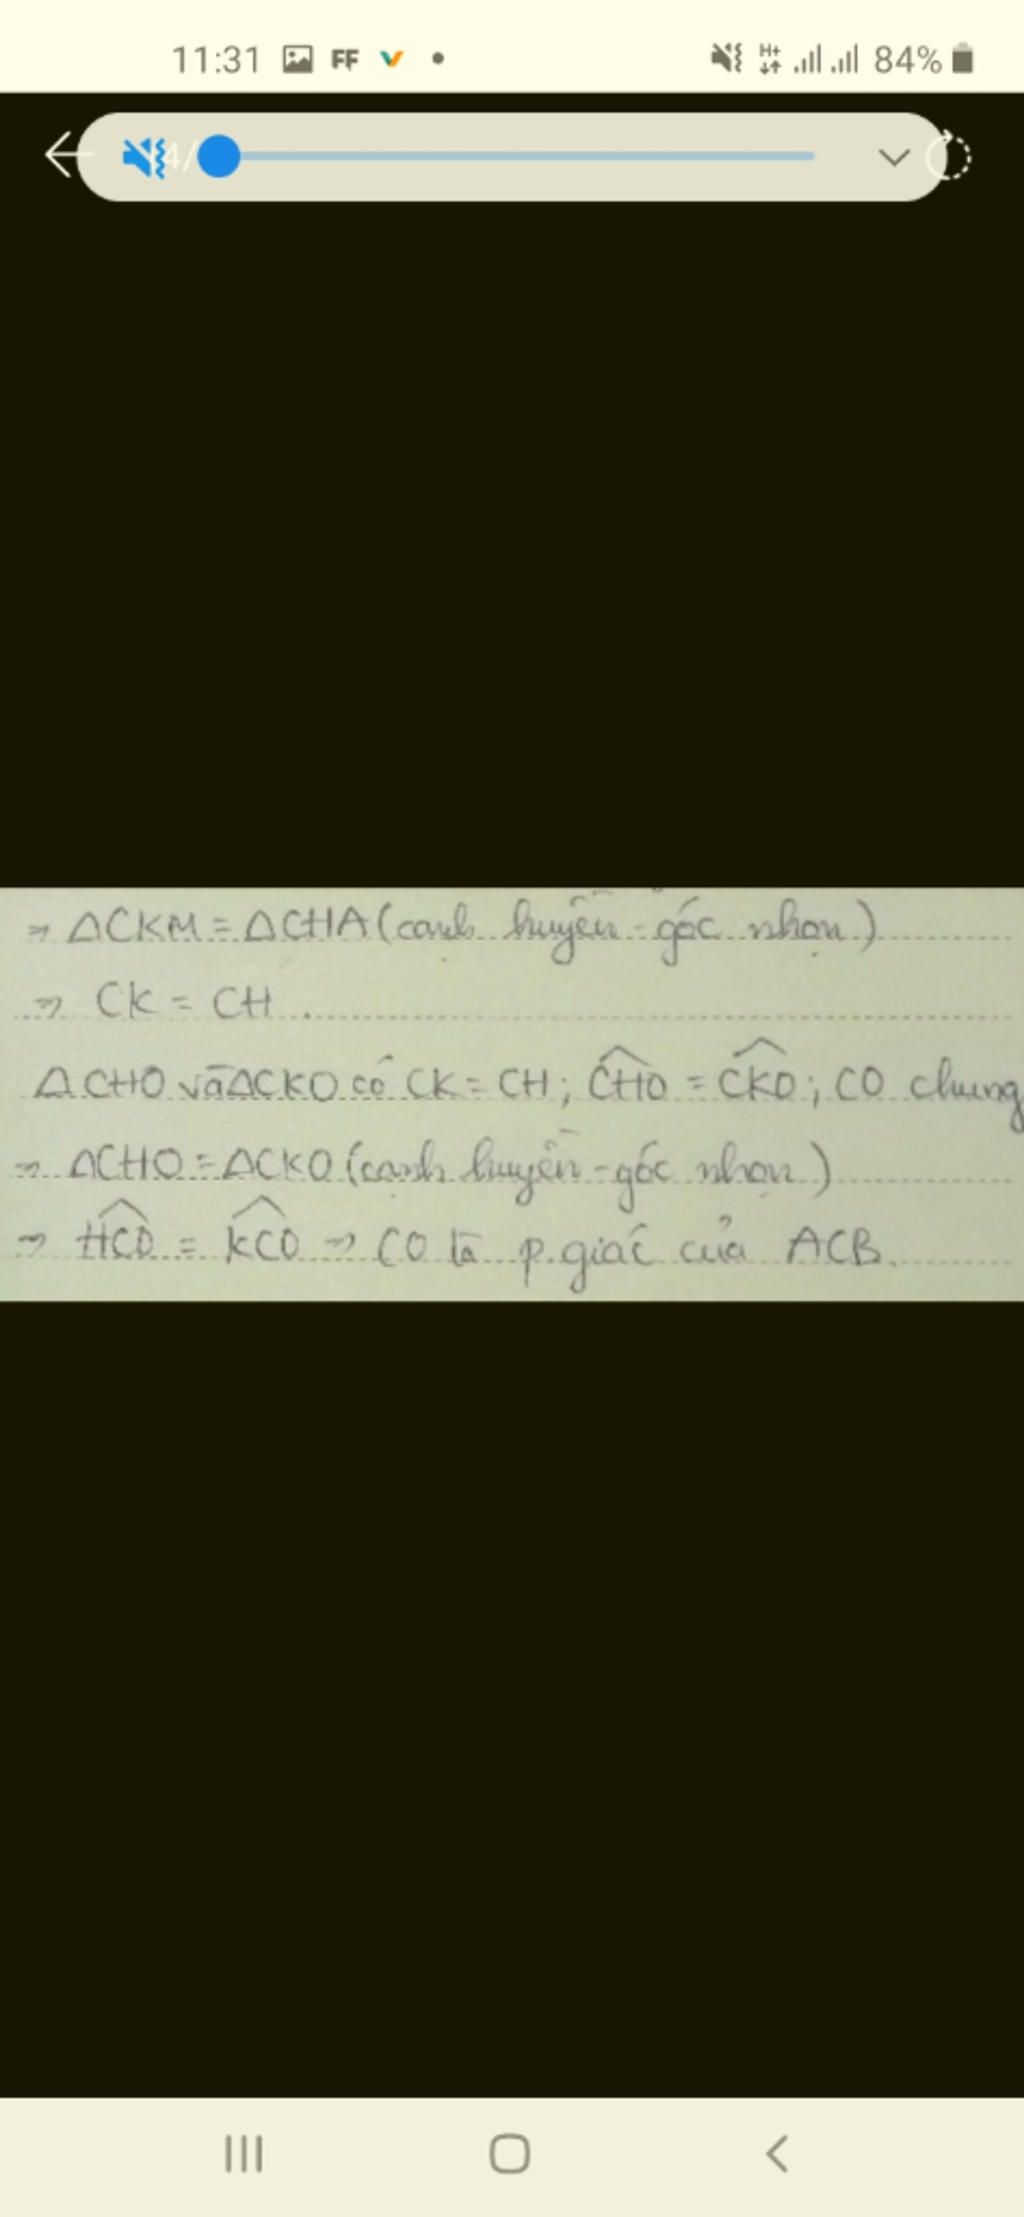 11:31 FF H+ 84%
4/
⇒ ΔCKM = ΔCHA (cạnh huyền - góc nhọn)
⇒ CK = CH.
ΔCHO và ΔCKO có CK = CH; \widehat{CHO} = \widehat{CKO}; CO chung
⇒ ΔCHO = ΔCKO (cạnh huyền - góc nhọn)
⇒ \widehat{HCO} = \widehat{KCO} ⇒ CO là p.giác của ACB.